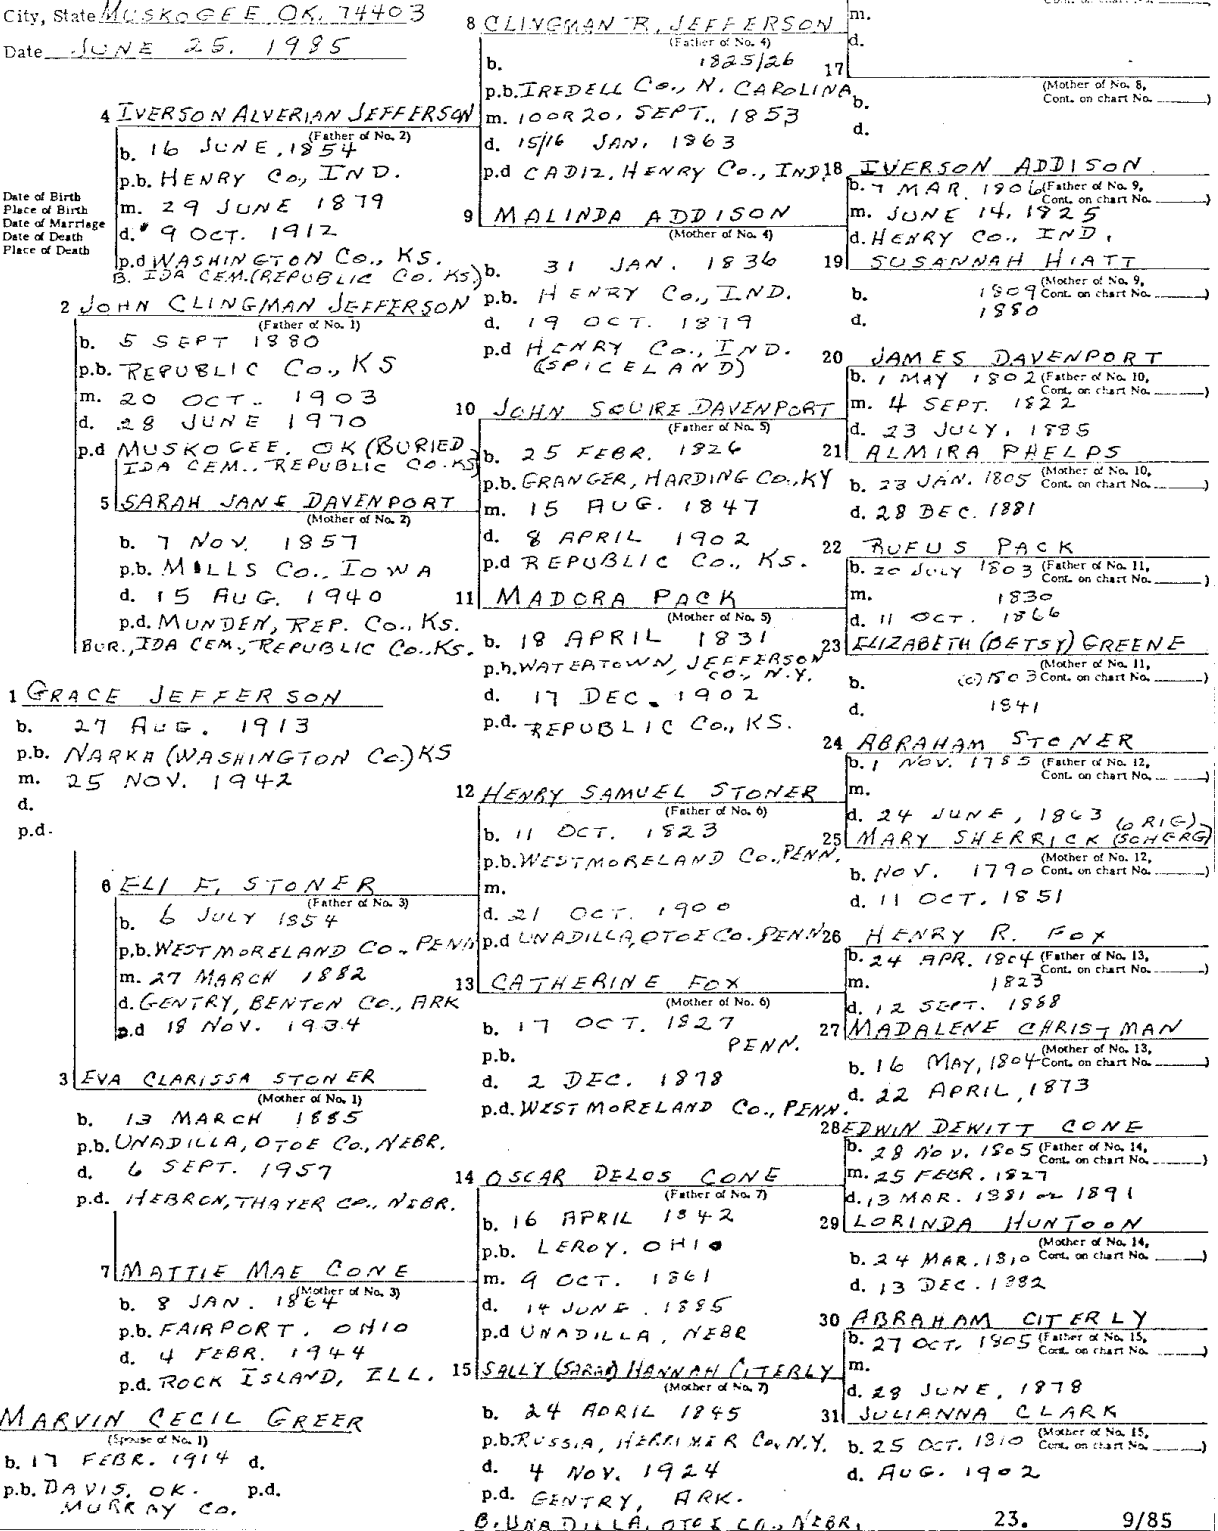 City, State MUSKOGEE OK. 74403
Date JUNE 25. 1985
4 IVERSON ALVERIAN JEFFERSON
(Father of No. 2)
b. 16 JUNE, 1854
p.b. HENRY CO, IND.
m. 29 JUNE 1879
d. 9 OCT. 1912
p.d WASHINGTON CO., KS.
B. IDA CEM. (REPUBLIC CO. KS)
Date of Birth
Place of Birth
Date of Marriage
Date of Death
Place of Death
2 JOHN CLINGMAN JEFFERSON
(Father of No. 1)
b. 5 SEPT 1880
p.b. REPUBLIC CO., KS
m. 20 OCT.. 1903
d. 28 JUNE 1970
p.d MUSKOGEE. OK (BURIED
IDA CEM., REPUBLIC CO. KS
5 SARAH JANE DAVENPORT
(Mother of No. 2)
b. 7 NOV. 1857
p.b. MILLS CO., IOWA
d. 15 AUG. 1940
p.d. MUNDEN, REP. CO., KS.
BUR., IDA CEM., REPUBLIC CO., KS.
1 GRACE JEFFERSON
b. 27 AUG. 1913
p.b. NARKA (WASHINGTON CO.) KS
m. 25 NOV. 1942
d.
p.d.
6 ELI F. STONER
(Father of No. 3)
b. 6 JULY 1854
p.b. WESTMORELAND CO., PENN
m. 27 MARCH 1882
d. GENTRY, BENTON CO., ARK
p.d 18 NOV. 1934
3 EVA CLARISSA STONER
(Mother of No. 1)
b. 13 MARCH 1885
p.b. UNADILLA, OTOE CO., NEBR.
d. 6 SEPT. 1957
p.d. HEBRON, THAYER CO., NEBR.
7 MATTIE MAE CONE
(Mother of No. 3)
b. 8 JAN. 1864
p.b. FAIRPORT, OHIO
d. 4 FEBR. 1944
p.d. ROCK ISLAND, ILL.
MARVIN CECIL GREER
(Spouse of No. 1)
b. 17 FEBR. 1914 d.
p.b. DAVIS, OK. p.d.
MURRAY CO.
8 CLINGMAN R. JEFFERSON
(Father of No. 4)
b. 1825/26
p.b. IREDELL CO., N. CAROLINA
m. 10 OR 20, SEPT., 1853
d. 15/16 JAN. 1863
p.d CADIZ, HENRY CO., IND.
9 MALINDA ADDISON
(Mother of No. 4)
b. 31 JAN. 1836
p.b. HENRY CO., IND.
d. 19 OCT. 1879
p.d HENRY CO., IND.
(SPICELAND)
10 JOHN SQUIRE DAVENPORT
(Father of No. 5)
b. 25 FEBR. 1826
p.b. GRANGER, HARDING CO., KY
m. 15 AUG. 1847
d. 8 APRIL 1902
p.d REPUBLIC CO., KS.
11 MADORA PACK
(Mother of No. 5)
b. 18 APRIL 1831
p.b. WATERTOWN, JEFFERSON
CO., N.Y.
d. 17 DEC. 1902
p.d. REPUBLIC CO., KS.
12 HENRY SAMUEL STONER
(Father of No. 6)
b. 11 OCT. 1823
p.b. WESTMORELAND CO., PENN.
m.
d. 21 OCT. 1900
p.d UNADILLA, OTOE CO. PENN
13 CATHERINE FOX
(Mother of No. 6)
b. 17 OCT. 1827
PENN.
p.b.
d. 2 DEC. 1878
p.d. WESTMORELAND CO., PENN.
14 OSCAR DELOS CONE
(Father of No. 7)
b. 16 APRIL 1842
p.b. LEROY, OHIO
m. 9 OCT. 1861
d. 14 JUNE. 1885
p.d UNADILLA, NEBR
15 SALLY (SARAH) HANNAH CITERLY
(Mother of No. 7)
b. 24 APRIL 1845
p.b. RUSSIA, HERKIMER CO., N.Y.
d. 4 NOV. 1924
p.d. GENTRY, ARK.
B. UNADILLA, OTOE CO., NEBR.
m.
d.
17
(Mother of No. 8,
Cont. on chart No. )
b.
d.
18 IVERSON ADDISON
b. 7 MAR. 1806 (Father of No. 9,
Cont. on chart No. )
m. JUNE 14, 1825
d. HENRY CO., IND.
19 SUSANNAH HIATT
(Mother of No. 9,
b. 1809 Cont. on chart No. )
d. 1880
20 JAMES DAVENPORT
b. 1 MAY 1802 (Father of No. 10,
Cont. on chart No. )
m. 4 SEPT. 1822
d. 23 JULY, 1885
21 ALMIRA PHELPS
(Mother of No. 10,
b. 23 JAN. 1805 Cont. on chart No. )
d. 28 DEC. 1881
22 RUFUS PACK
b. 20 JULY 1803 (Father of No. 11,
Cont. on chart No. )
m. 1830
d. 11 OCT. 1866
23 ELIZABETH (BETSY) GREENE
(Mother of No. 11,
b. (c) 1803 Cont. on chart No. )
d. 1841
24 ABRAHAM STONER
b. 1 NOV. 1785 (Father of No. 12,
Cont. on chart No. )
m.
d. 24 JUNE, 1863 (ORIG)
25 MARY SHERRICK (SCHERG)
(Mother of No. 12,
b. NOV. 1790 Cont. on chart No. )
d. 11 OCT. 1851
26 HENRY R. FOX
b. 24 APR. 1804 (Father of No. 13,
Cont. on chart No. )
m. 1823
d. 12 SEPT. 1868
27 MADALENE CHRISTMAN
(Mother of No. 13,
b. 16 MAY, 1804 Cont. on chart No. )
d. 22 APRIL, 1873
28 EDWIN DEWITT CONE
b. 28 NOV. 1805 (Father of No. 14,
Cont. on chart No. )
m. 25 FEBR. 1827
d. 13 MAR. 1881 or 1891
29 LORINDA HUNTOON
(Mother of No. 14,
b. 24 MAR. 1810 Cont. on chart No. )
d. 13 DEC. 1882
30 ABRAHAM CITERLY
b. 27 OCT. 1805 (Father of No. 15,
Cont. on chart No. )
m.
d. 28 JUNE, 1878
31 JULIANNA CLARK
(Mother of No. 15,
b. 25 OCT. 1810 Cont. on chart No. )
d. AUG. 1902
23. 9/85